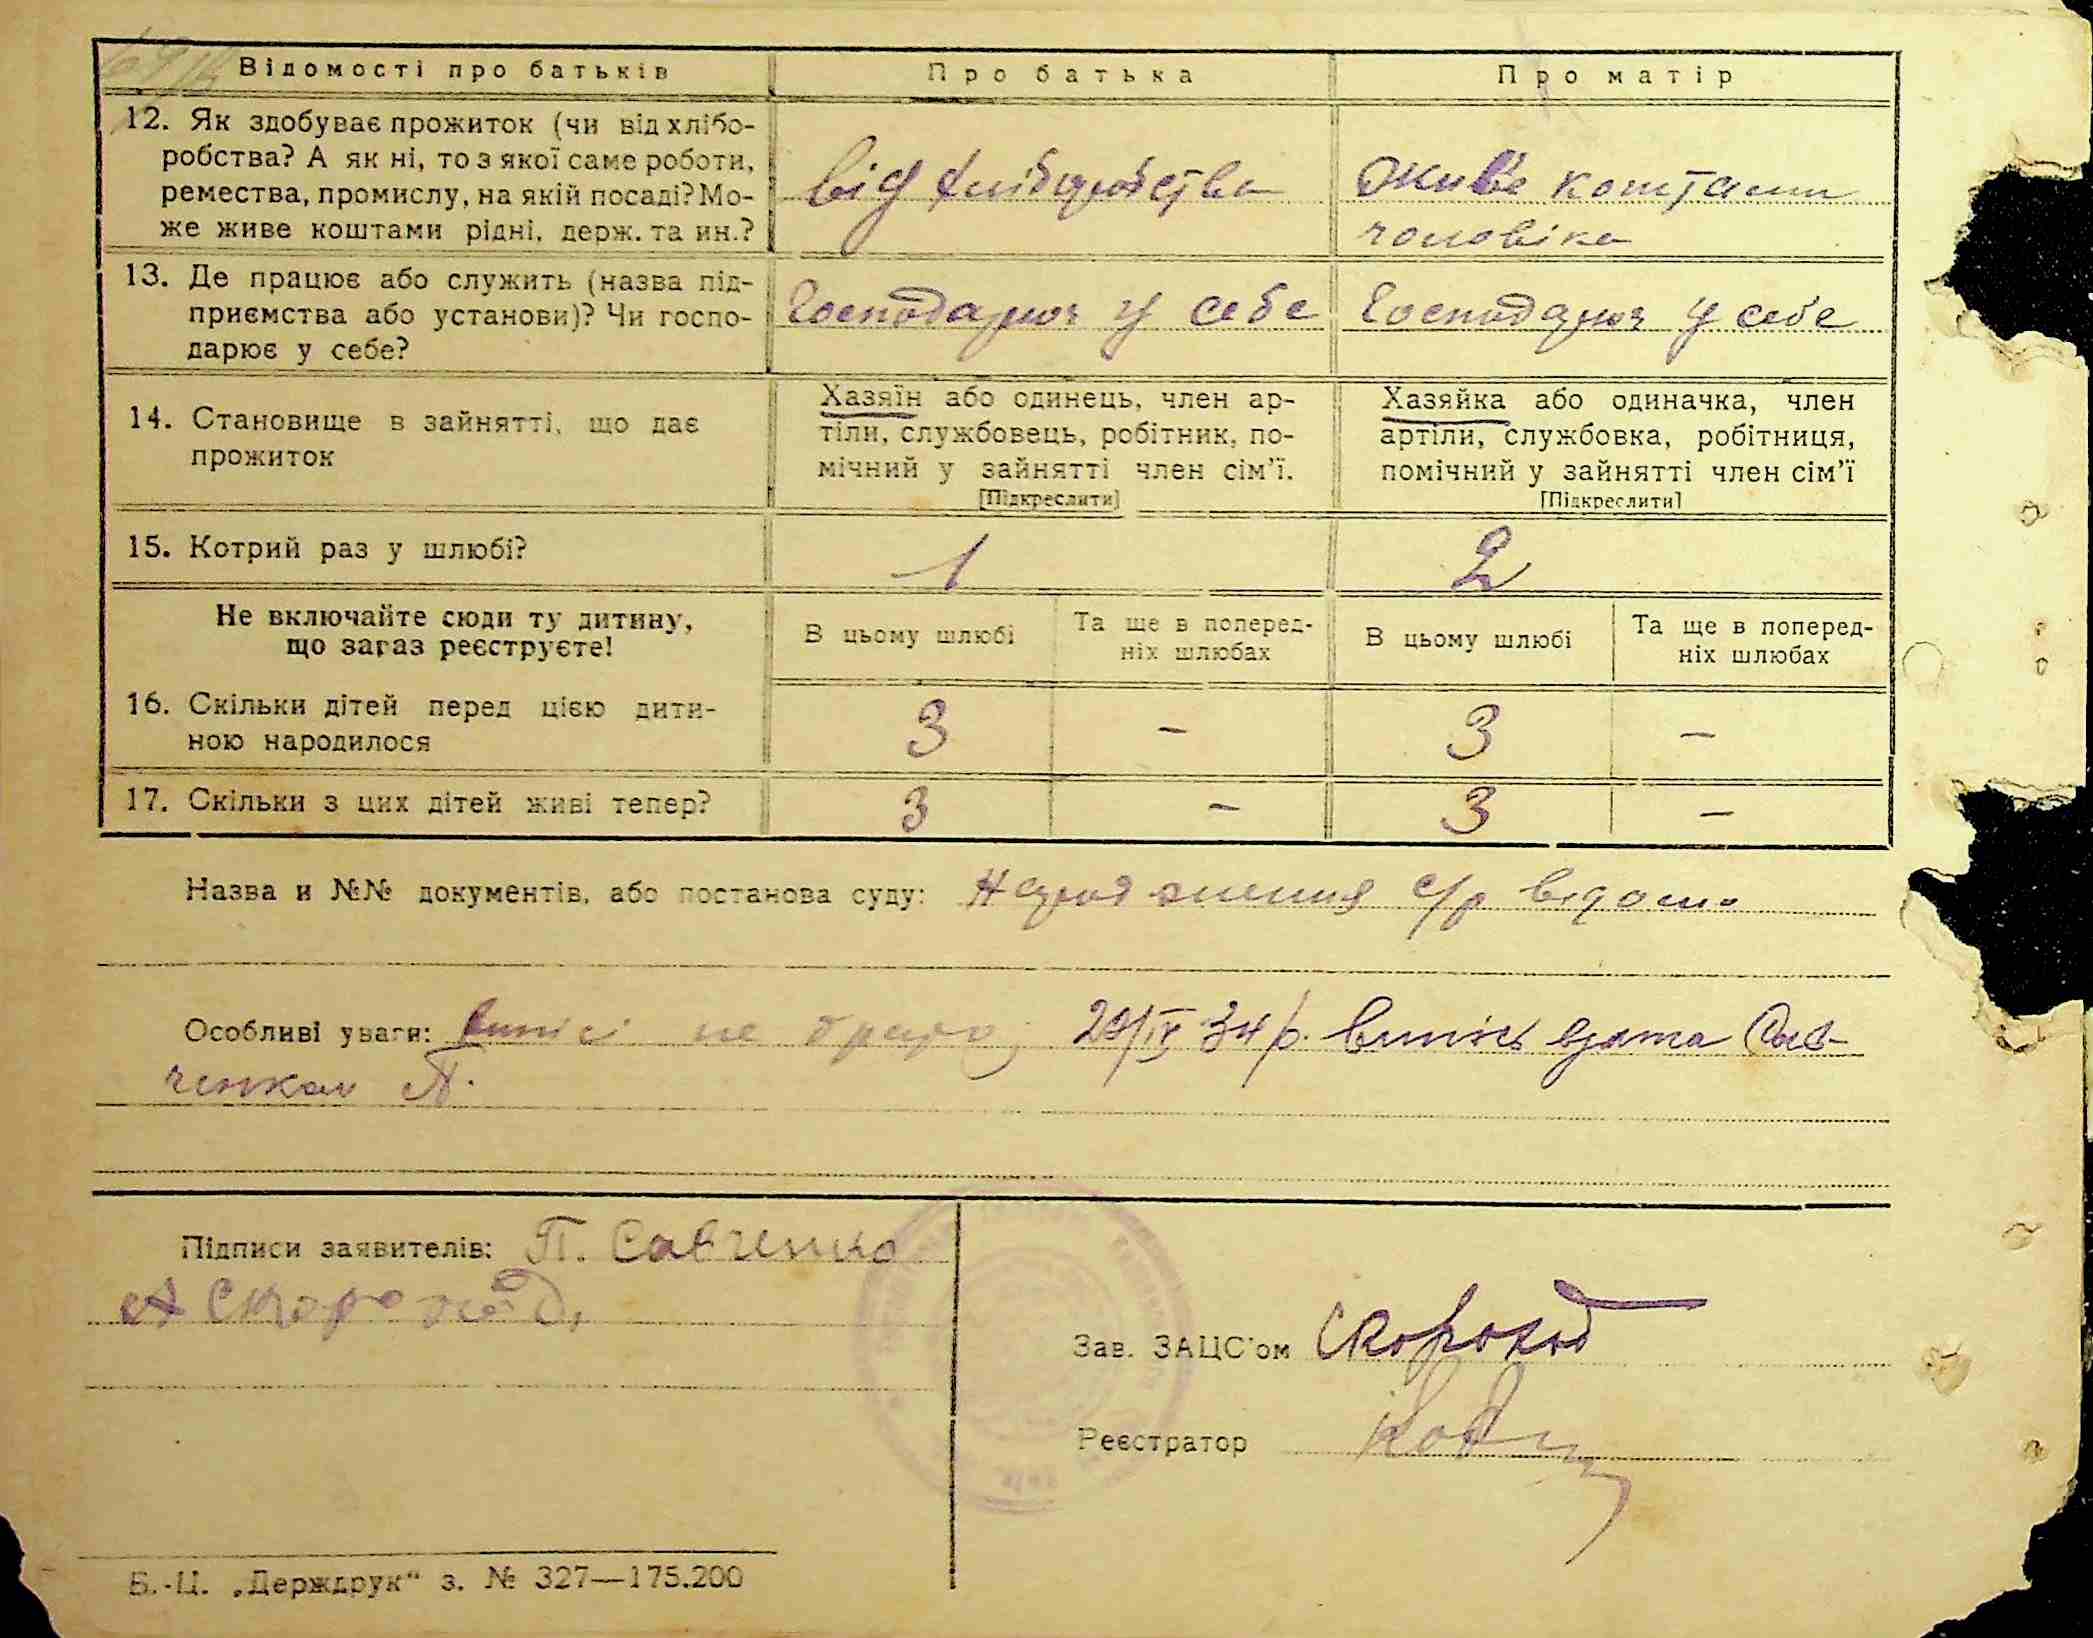 Відомості про батьків
Про батька
Про матір
12. Як здобуває прожиток (чи від хлібо-
робства? А як ні, то з якої саме роботи,
ремества, промислу, на якій посаді? Мо-
же живе коштами рідні, держ. та ин.?
від хліборобства
живе коштами
чоловіка
13. Де працює або служить (назва під-
приємства або установи)? Чи госпо-
дарює у себе?
Господарює у себе
Господарює у себе
14. Становище в зайнятті, що дає
прожиток
Хазяїн або одинець, член ар-
тіли, службовець, робітник, по-
мічний у зайнятті член сім'ї.
[Підкреслити]
Хазяйка або одиначка, член
артіли, службовка, робітниця,
помічний у зайнятті член сім'ї
[Підкреслити]
15. Котрий раз у шлюбі?
1
2
Не включайте сюди ту дитину,
що зараз реєструєте!
В цьому шлюбі
Та ще в поперед-
ніх шлюбах
В цьому шлюбі
Та ще в поперед-
ніх шлюбах
16. Скільки дітей перед цією дити-
ною народилося
3 – 3 –
17. Скільки з цих дітей живі тепер?
3 – 3 –
Назва и №№ документів, або постанова суду: с/р відомо
Особливі уваги: виписі не брато, 29/IX 34 р. випись взята Сав-
ченком П.
Підписи заявителів: П. Савченко
А Скороход
Зав. ЗАЦС'ом Скороход
Реєстратор
Б.-Ц. „Держдрук“ з. № 327—175.200